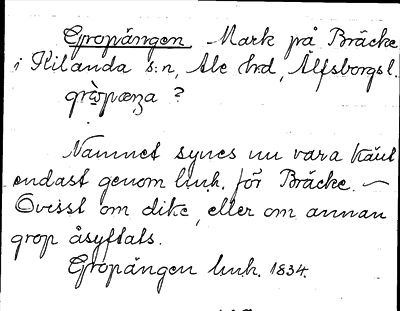 Gropängen Mark på Bräcke
i Kilanda s:n, Ale hrd, Älfsborgs l.
grὼpæŋa ?
Namnet synes nu vara känt
endast genom lmh. för Bräcke. –
Ovisst om dike, eller om annan
grop åsyftats.
Gropängen lmh. 1834.